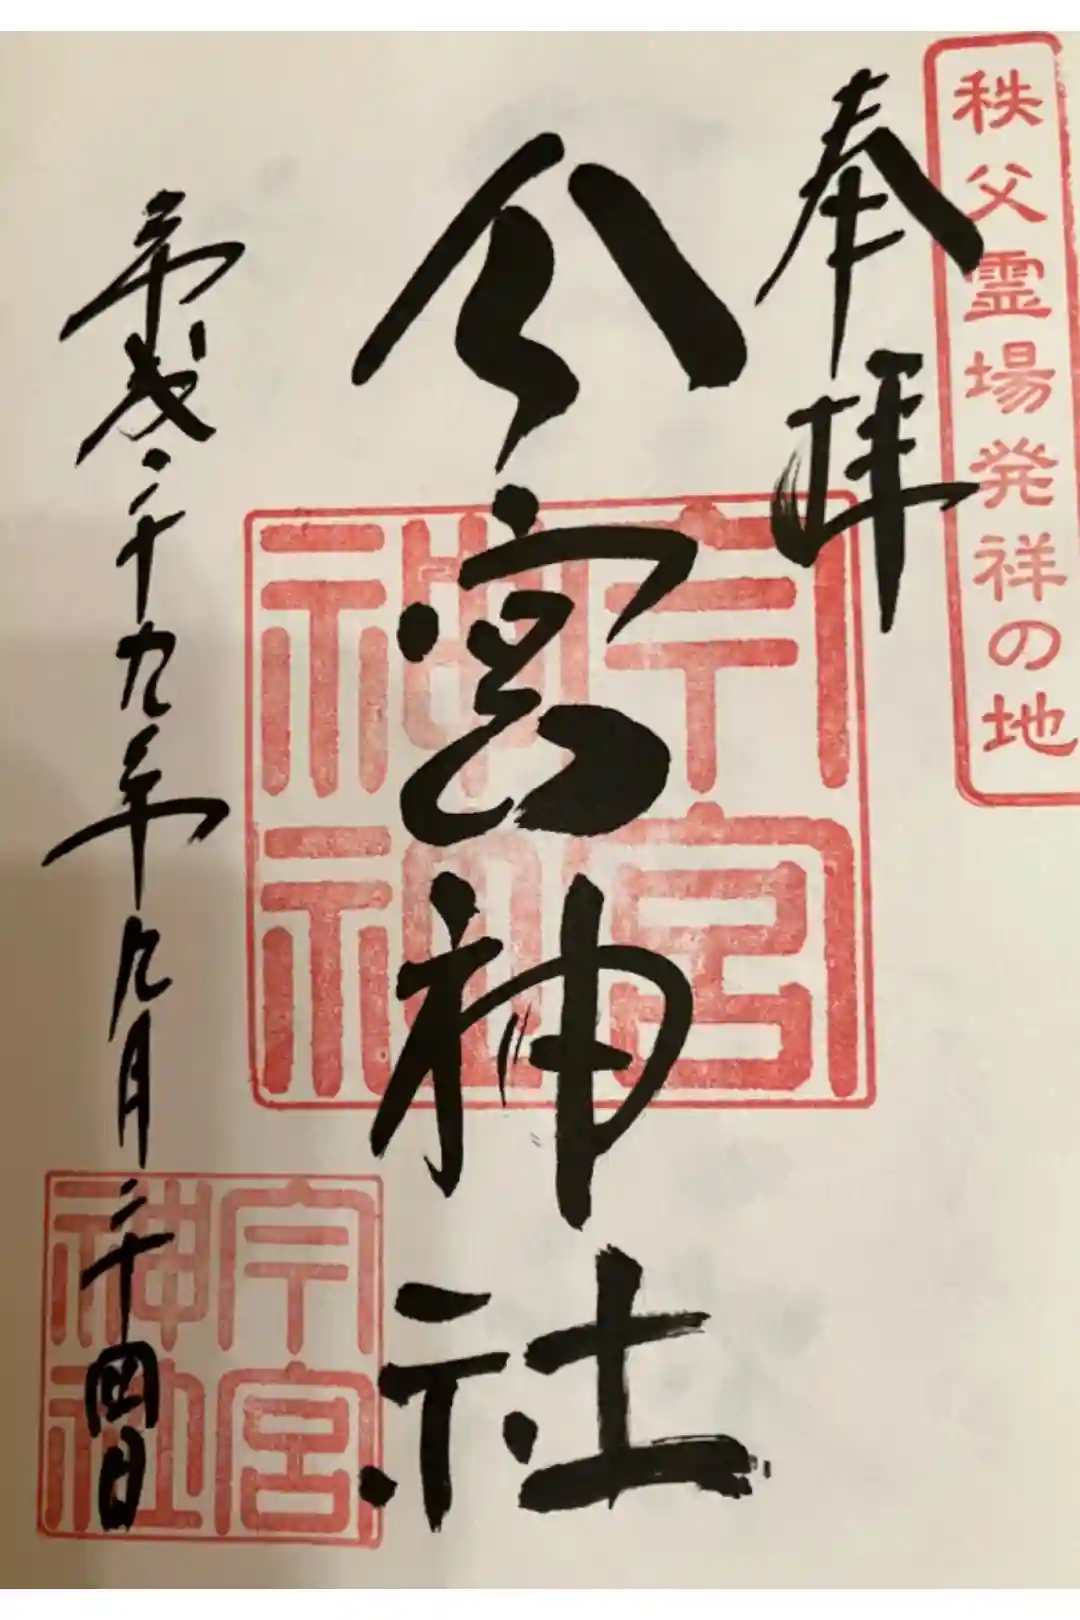 秩父霊場発祥の地
奉拝
今宮神社
今宮
神社
平成二十九年九月二十四日
今宮
神社